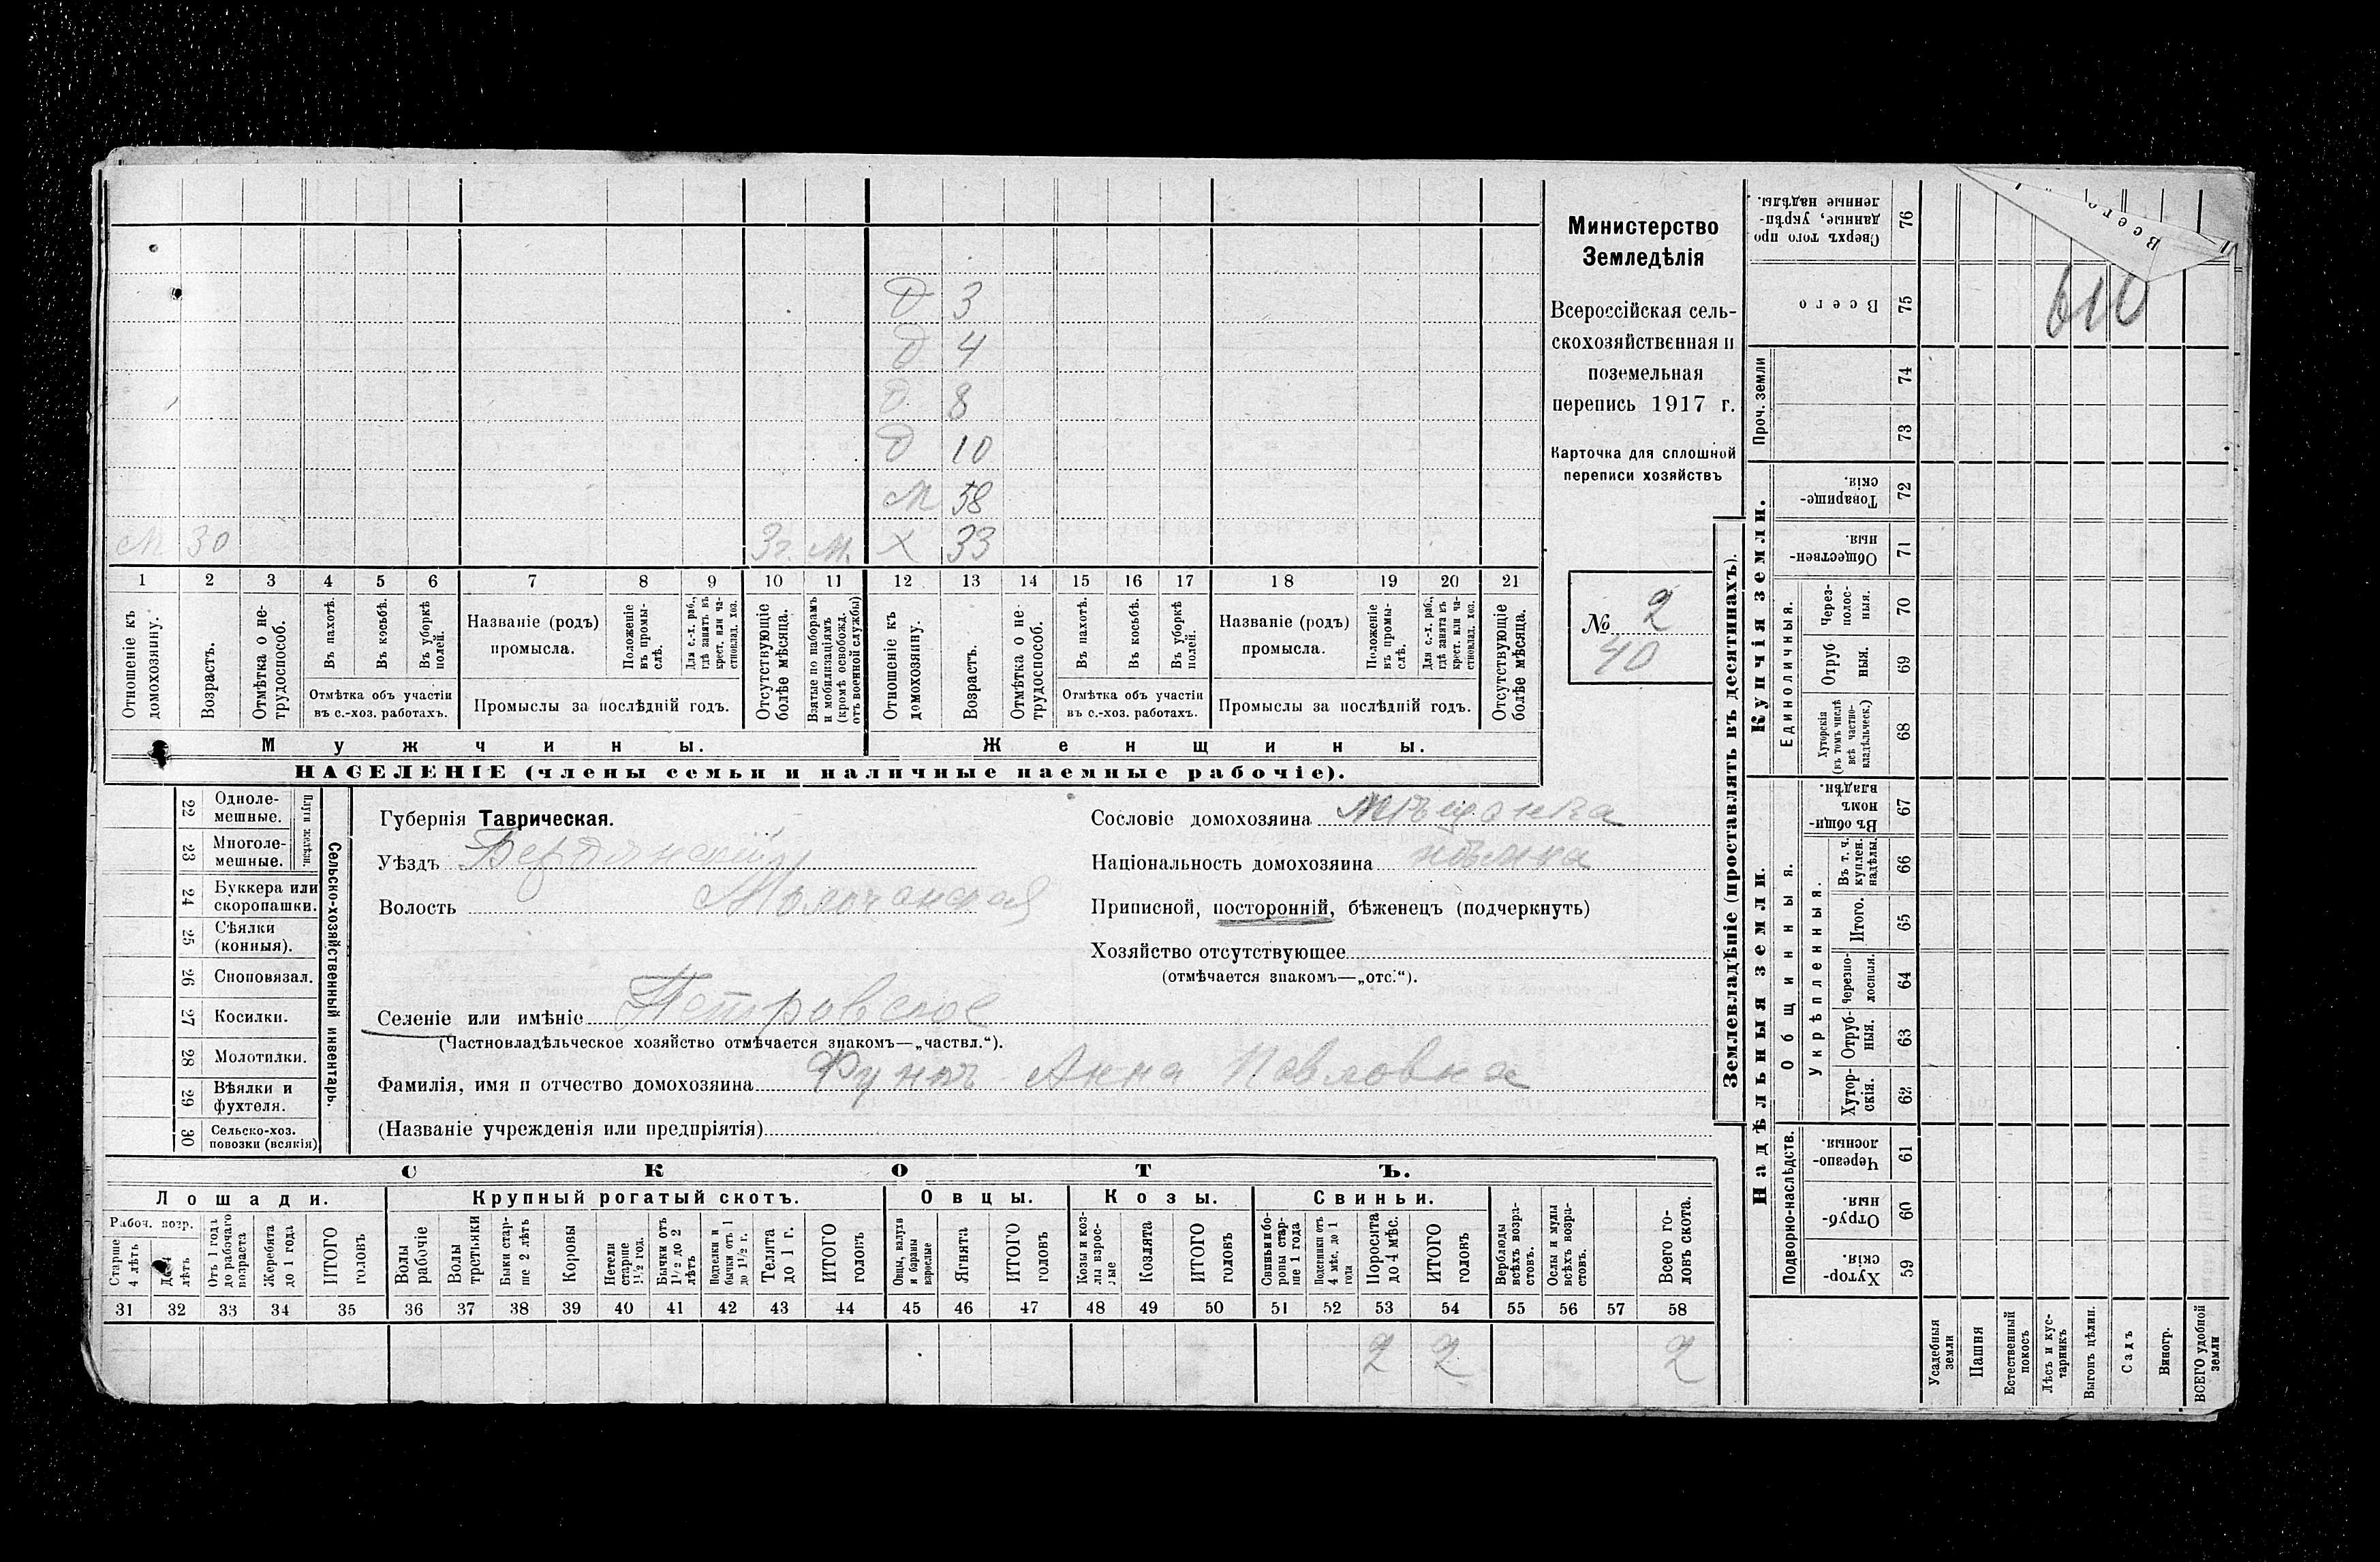 Министерство
Земледѣлія
Всероссійская сель-
скохозяйственная и
поземельная
перепись 1917 г.
Карточка для сплошной
переписи хозяйствъ
№ 2
40
610
Д 3
Д 4
Д 8
Д 10
М 58
М 30 3г. М. Х 33
1 2 3 4 5 6 7 8 9 10 11 12 13 14 15 16 17 18 19 20 21
Отношеніе къ домохозяину.
Возрастъ.
Отмѣтка о не-трудоспособ.
Въ пахотѣ.
Въ косьбѣ.
Въ уборкѣ полей.
Отмѣтка объ участіи
въ с.-хоз. работахъ.
Названіе (родъ)
промысла.
Положеніе въ промы-слѣ.
Для с.-х. раб., гдѣ занятъ въ крест. или ча-стновлад. хоз.
Промыслы за послѣдній годъ.
Отсутствующіе болѣе мѣсяца.
Взятые по наборамъ и мобилизаціямъ (кромѣ освобожд. отъ военной службы)
Отношеніе къ домохозяину.
Возрастъ.
Отмѣтка о не-трудоспособ.
Въ пахотѣ.
Въ косьбѣ.
Въ уборкѣ полей.
Отмѣтка объ участіи
въ с.-хоз. работахъ.
Названіе (родъ)
промысла.
Положеніе въ промы-слѣ.
Для с.-х. раб., гдѣ занята въ крест. или ча-стновлад. хоз.
Промыслы за послѣдній годъ.
Отсутствующіе болѣе мѣсяца.
Мужчины. Женщины.
НАСЕЛЕНІЕ (члены семьи и наличные наемные рабочіе).
Сельско-хозяйственный инвентарь.
Плуги желѣзн.
22 Одноле-мешные.
23 Многоле-мешные.
24 Буккера или скоропашки.
25 Сѣялки (конныя).
26 Сноповязал.
27 Косилки.
28 Молотилки.
29 Вѣялки и фухтеля.
30 Сельско-хоз. повозки (всякія)
Губернія Таврическая.
Уѣздъ Бердянскій
Волость Молочанская
Селеніе или имѣніе Петровское
(Частновладѣльческое хозяйство отмѣчается знакомъ—„частвл.“).
Фамилія, имя и отчество домохозяина Функъ Анна Павловна
(Названіе учрежденія или предпріятія)
Сословіе домохозяина мѣщанка
Національность домохозяина нѣмка
Приписной, посторонній, бѣженецъ (подчеркнуть)
Хозяйство отсутствующее
(отмѣчается знакомъ—„отс.“).
СКОТЪ.
Лошади. Крупный рогатый скотъ. Овцы. Козы. Свиньи.
Рабоч. возр.
Старше 4 лѣтъ
До 4 лѣтъ
Отъ 1 года до рабочаго возраста
Жеребята до 1 года
ИТОГО головъ
Волы рабочіе
Волы третьяки
Быки стар-ше 2 лѣтъ
Коровы
Нетели старше 1½ год.
Бычки отъ 1½ до 2 лѣтъ
Подтелки и бычки отъ 1 до 1½ г.
Телята до 1 г.
ИТОГО головъ
Овцы, валухи и бараны взрослые
Ягнята
ИТОГО головъ
Козы и коз-лы взрос-лые
Козлята
ИТОГО головъ
Свиньи и бо-ровы стар-ше 1 года
Подсвинки отъ 4 мѣс. до 1 года
Поросята до 4 мѣс.
ИТОГО головъ
Верблюды всѣхъ возра-стовъ.
Ослы и мулы всѣхъ возра-стовъ.
Всего го-ловъ скота.
31 32 33 34 35 36 37 38 39 40 41 42 43 44 45 46 47 48 49 50 51 52 53 54 55 56 57 58
2 2 2
Землевладѣніе (проставлять въ десятинахъ).
Купчія земли.
Надѣльныя земли.
Проч. земли
Единоличныя.
Общинныя.
Укрѣпленныя.
Подворно-наслѣдств.
76 Сверхъ того про-данные, укрѣп-ленные надѣлы.
75 Всего
74
73
72 Товарище-скія.
71 Обществен-ныя.
70 Через-полос-ныя.
69 Отруб-ныя.
68 Хуторскія (въ томъ числѣ всѣ частно-владѣльческ.)
67 Въ общин-номъ владѣн.
66 Въ т. ч. куплен. надѣлы.
65 Итого.
64 Черезпо-лосныя.
63 Отруб-ныя.
62 Хутор-скія.
61 Черезпо-лосныя.
60 Отруб-ныя.
59 Хутор-скія.
Усадебныя земли
Пашня
Естественный покосъ
Лѣсъ и кус-тарникъ
Выгонъ цѣлин.
Садъ
Виногр.
ВСЕГО удобной земли
Всего